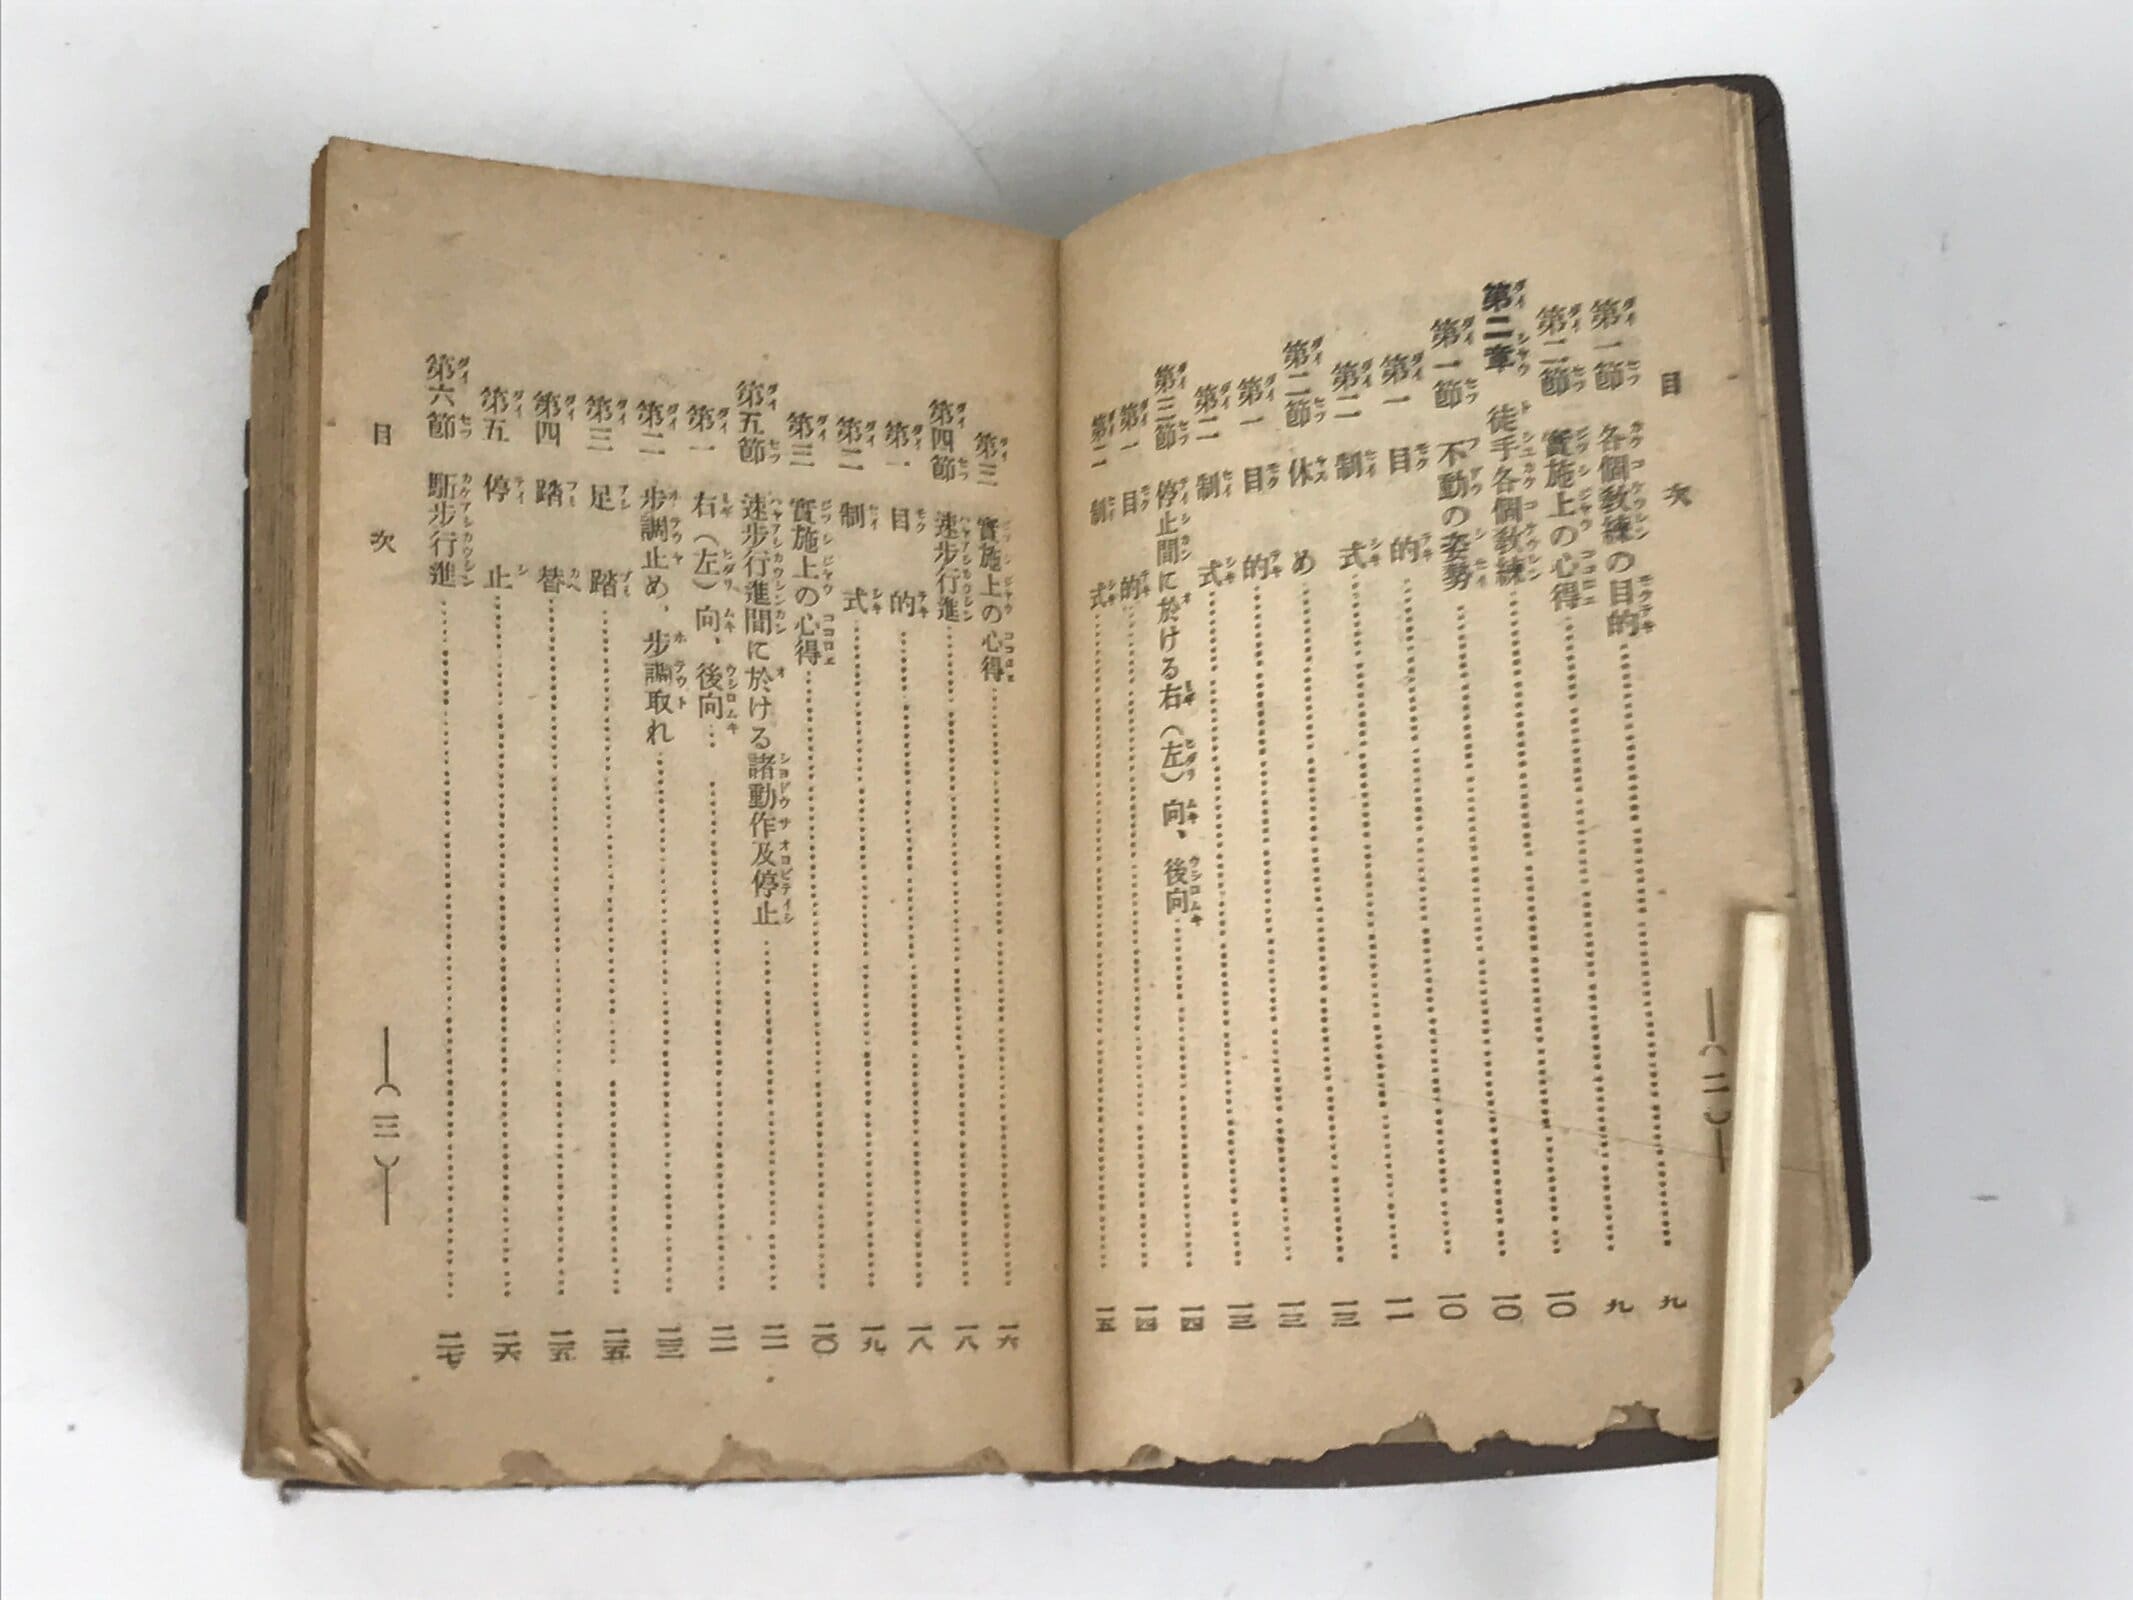 目次
―(二)―
第一節 各個教練の目的……九
第二節 實施上の心得……九
第二章 徒手各個教練……一〇
第一節 不動の姿勢……一〇
第一 目的……一〇
第二 制式……一一
第二節 休め……一三
第一 目的……一三
第二 制式……一三
第三節 停止間に於ける右(左)向、後向……一四
第一 目的……一四
第二 制式……一五
第三 實施上の心得……一六
第四節 速步行進……一八
第一 目的……一八
第二 制式……一九
第三 實施上の心得……二〇
第五節 速步行進間に於ける諸動作及停止……二一
第一 右(左)向、後向……二二
第二 步調止め、步調取れ……二三
第三 足踏……二五
第四 踏替……二五
第五 停止……二六
第六節 駈步行進……二七
目次
―(三)―